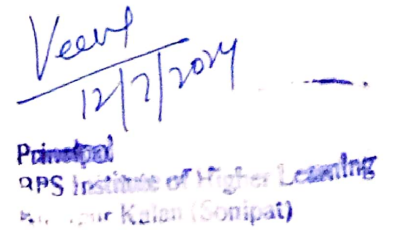 12/7/2024
Principal
BPS Institute of Higher Learning
Kalan (Sonipat)